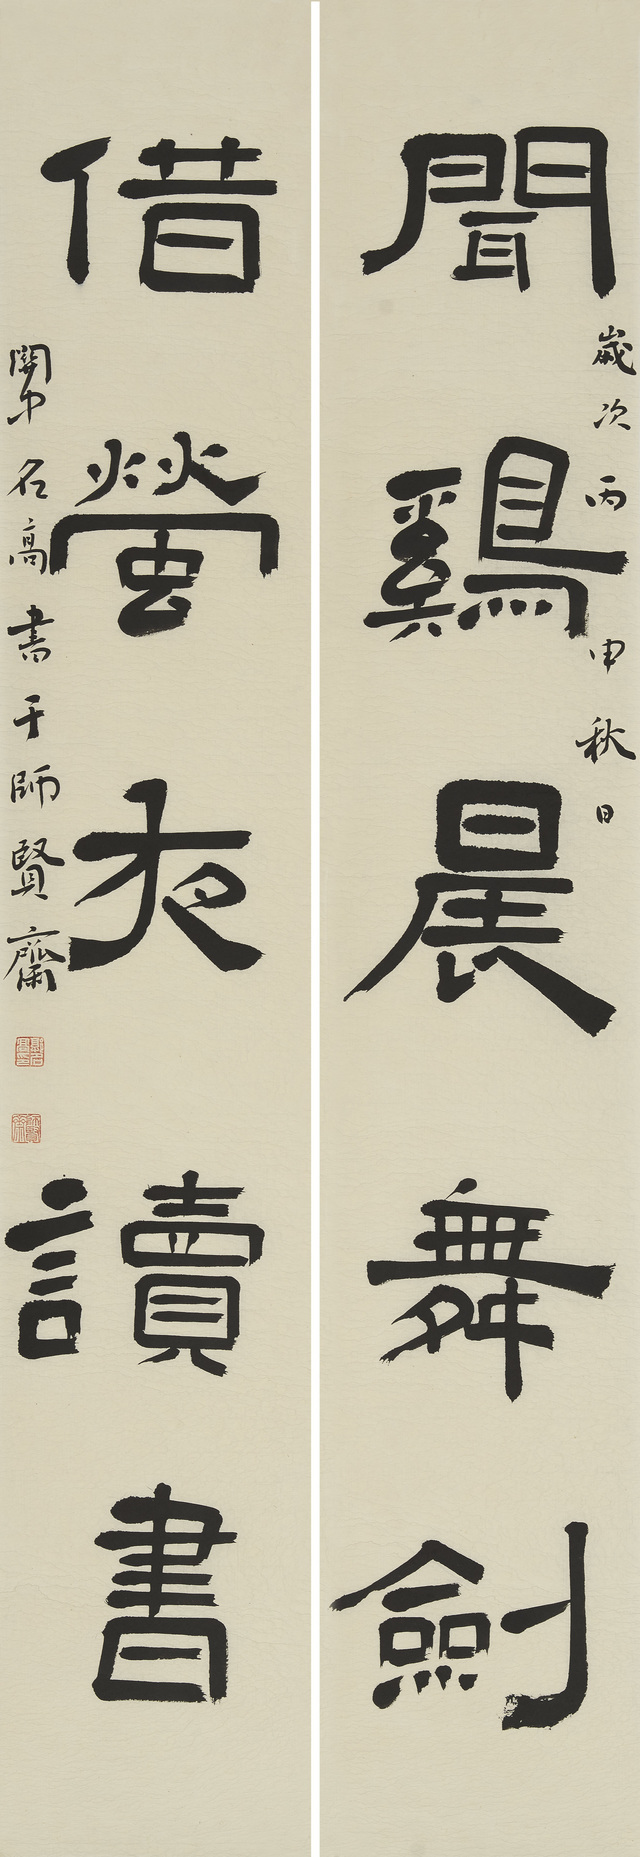 聞鷄晨舞劍
歲次丙申秋日
借螢夜讀書
關中名高書于師賢齋